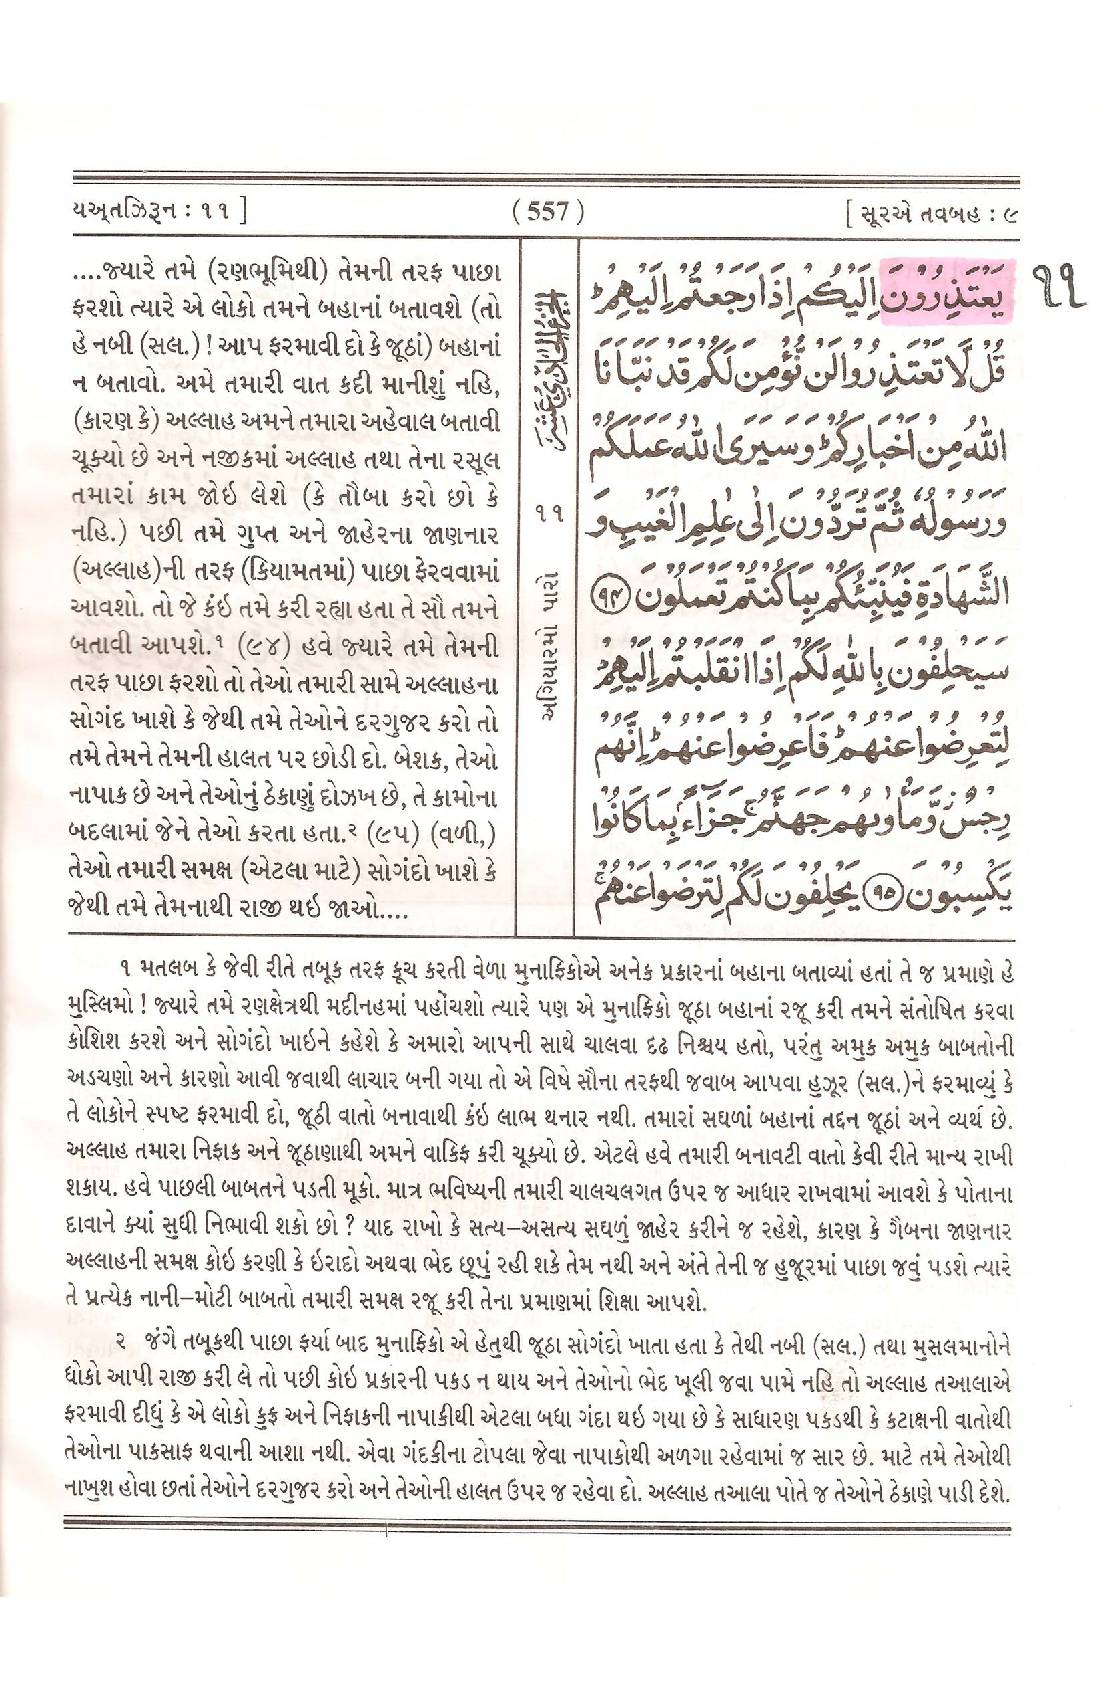 યઅ્તઝિરૂન : ૧૧ ]
( 557 )
[ સૂરએ તવબહ : ૯
....જ્યારે તમે (રણભૂમિથી) તેમની તરફ પાછા
ફરશો ત્યારે એ લોકો તમને બહાનાં બતાવશે (તો
હે નબી (સલ.) ! આપ ફરમાવી દો કે જૂઠાં) બહાનાં
ન બતાવો. અમે તમારી વાત કદી માનીશું નહિ,
(કારણ કે) અલ્લાહ અમને તમારા અહેવાલ બતાવી
ચૂક્યો છે અને નજીકમાં અલ્લાહ તથા તેના રસૂલ
તમારાં કામ જોઇ લેશે (કે તૌબા કરો છો કે
નહિ.) પછી તમે ગુપ્ત અને જાહેરના જાણનાર
(અલ્લાહ)ની તરફ (કિયામતમાં) પાછા ફેરવવામાં
આવશો. તો જે કંઇ તમે કરી રહ્યા હતા તે સૌ તમને
બતાવી આપશે.૧ (૯૪) હવે જ્યારે તમે તેમની
તરફ પાછા ફરશો તો તેઓ તમારી સામે અલ્લાહના
સોગંદ ખાશે કે જેથી તમે તેઓને દરગુજર કરો તો
તમે તેમને તેમની હાલત પર છોડી દો. બેશક, તેઓ
નાપાક છે અને તેઓનું ઠેકાણું દોઝખ છે, તે કામોના
બદલામાં જેને તેઓ કરતા હતા.૨ (૯૫) (વળી,)
તેઓ તમારી સમક્ષ (એટલા માટે) સોગંદો ખાશે કે
જેથી તમે તેમનાથી રાજી થઇ જાઓ....
الجزء الحادي عشر
૧૧
અગિયારમો પારો
يَعْتَذِرُوْنَ اِلَيْكُمْ اِذَا رَجَعْتُمْ اِلَيْهِمْ ؕ
૧૧
قُلْ لَّا تَعْتَذِرُوْا لَنْ نُّؤْمِنَ لَكُمْ قَدْ نَبَّاَنَا
اللّٰهُ مِنْ اَخْبَارِكُمْ ؕ وَسَيَرَى اللّٰهُ عَمَلَكُمْ
وَرَسُوْلُهٗ ثُمَّ تُرَدُّوْنَ اِلٰى عٰلِمِ الْغَيْبِ وَ
الشَّهَادَةِ فَيُنَبِّئُكُمْ بِمَا كُنْتُمْ تَعْمَلُوْنَ ۹۴
سَيَحْلِفُوْنَ بِاللّٰهِ لَكُمْ اِذَا انْقَلَبْتُمْ اِلَيْهِمْ
لِتُعْرِضُوْا عَنْهُمْ ؕ فَاَعْرِضُوْا عَنْهُمْ ؕ اِنَّهُمْ
رِجْسٌ وَّمَاْوٰىهُمْ جَهَنَّمُ ۚ جَزَآءًۢ بِمَا كَانُوْا
يَكْسِبُوْنَ ۹۵ يَحْلِفُوْنَ لَكُمْ لِتَرْضَوْا عَنْهُمْ ۚ
૧ મતલબ કે જેવી રીતે તબૂક તરફ કૂચ કરતી વેળા મુનાફિકોએ અનેક પ્રકારનાં બહાના બતાવ્યાં હતાં તે જ પ્રમાણે હે
મુસ્લિમો ! જ્યારે તમે રણક્ષેત્રથી મદીનહમાં પહોંચશો ત્યારે પણ એ મુનાફિકો જૂઠા બહાનાં રજૂ કરી તમને સંતોષિત કરવા
કોશિશ કરશે અને સોગંદો ખાઇને કહેશે કે અમારો આપની સાથે ચાલવા દૃઢ નિશ્ચય હતો, પરંતુ અમુક અમુક બાબતોની
અડચણો અને કારણો આવી જવાથી લાચાર બની ગયા તો એ વિષે સૌના તરફથી જવાબ આપવા હુઝૂર (સલ.)ને ફરમાવ્યું કે
તે લોકોને સ્પષ્ટ ફરમાવી દો, જૂઠી વાતો બનાવાથી કંઇ લાભ થનાર નથી. તમારાં સઘળાં બહાનાં તદ્દન જૂઠાં અને વ્યર્થ છે.
અલ્લાહ તમારા નિફાક અને જૂઠાણાથી અમને વાકિફ કરી ચૂક્યો છે. એટલે હવે તમારી બનાવટી વાતો કેવી રીતે માન્ય રાખી
શકાય. હવે પાછલી બાબતને પડતી મૂકો. માત્ર ભવિષ્યની તમારી ચાલચલગત ઉપર જ આધાર રાખવામાં આવશે કે પોતાના
દાવાને ક્યાં સુધી નિભાવી શકો છો ? યાદ રાખો કે સત્ય–અસત્ય સઘળું જાહેર કરીને જ રહેશે, કારણ કે ગૈબના જાણનાર
અલ્લાહની સમક્ષ કોઇ કરણી કે ઇરાદો અથવા ભેદ છૂપું રહી શકે તેમ નથી અને અંતે તેની જ હુજૂરમાં પાછા જવું પડશે ત્યારે
તે પ્રત્યેક નાની–મોટી બાબતો તમારી સમક્ષ રજૂ કરી તેના પ્રમાણમાં શિક્ષા આપશે.
૨ જંગે તબૂકથી પાછા ફર્યા બાદ મુનાફિકો એ હેતુથી જૂઠા સોગંદો ખાતા હતા કે તેથી નબી (સલ.) તથા મુસલમાનોને
ધોકો આપી રાજી કરી લે તો પછી કોઇ પ્રકારની પકડ ન થાય અને તેઓનો ભેદ ખૂલી જવા પામે નહિ તો અલ્લાહ તઆલાએ
ફરમાવી દીધું કે એ લોકો કુફ્ર અને નિફાકની નાપાકીથી એટલા બધા ગંદા થઇ ગયા છે કે સાધારણ પકડથી કે કટાક્ષની વાતોથી
તેઓના પાકસાફ થવાની આશા નથી. એવા ગંદકીના ટોપલા જેવા નાપાકોથી અળગા રહેવામાં જ સાર છે. માટે તમે તેઓથી
નાખુશ હોવા છતાં તેઓને દરગુજર કરો અને તેઓની હાલત ઉપર જ રહેવા દો. અલ્લાહ તઆલા પોતે જ તેઓને ઠેકાણે પાડી દેશે.